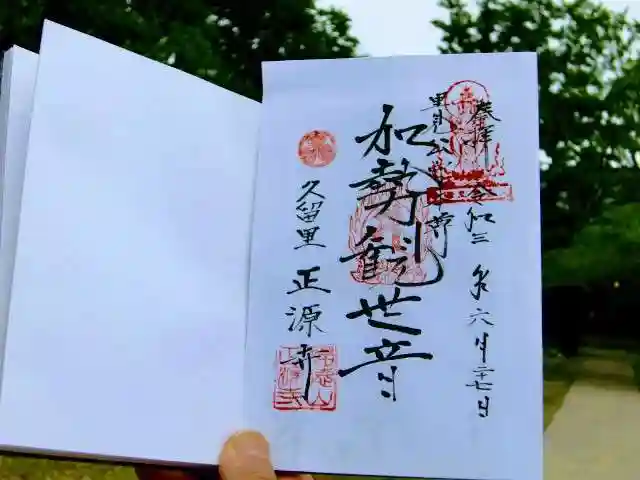 奉拝 令和三年六月二十七日
里見公
加勢観世音
久留里 正源寺